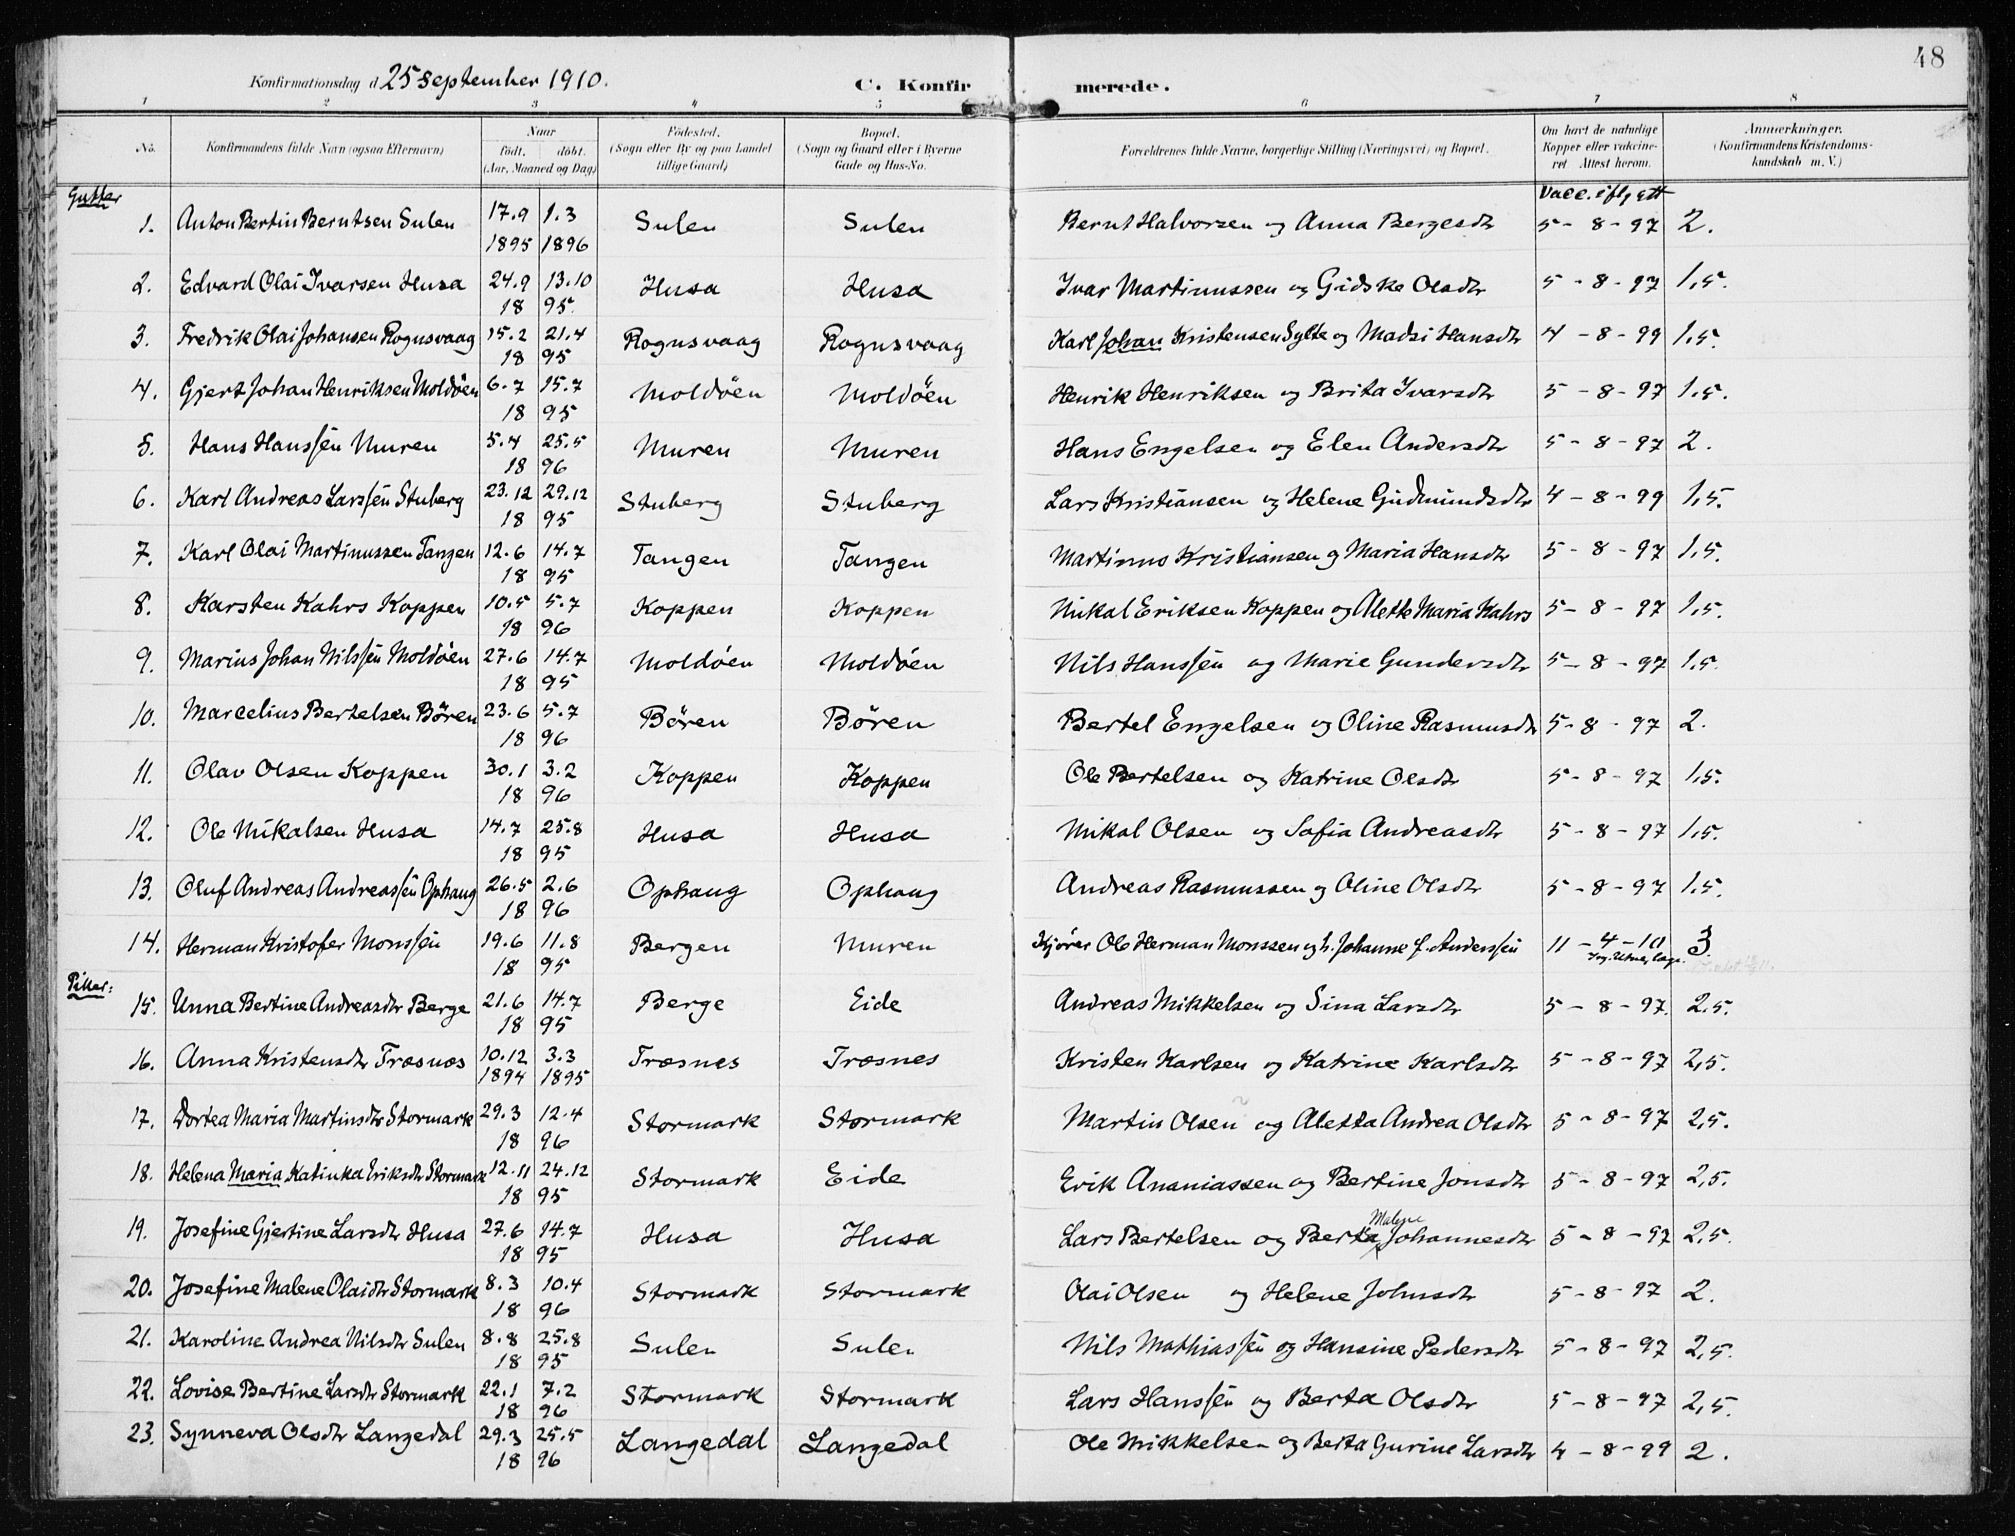 48
Konfirmationsdag d. 25 september 1910. C. Konfirmerede.
1 2 3 4 5 6 7 8
No. Konfirmandens fulde Navn (ogsaa Efternavn) Naar født, døbt. (Aar, Maaned og Dag) Fødested. (Sogn eller By og paa Landet tillige Gaard) Bopæl. (Sogn og Gaard eller i Byerne Gade og Hus-No. Forældrenes fulde Navne, borgerlige Stilling (Næringsvei) og Bopæl. Om havt de naturlige Kopper eller vakcineret Attest herom. Anmerkninger. (Konfirmandens Kristendomskundskab m. V.)
Gutter Vacc. iflg att
1. Anton Bertin Berntsen Sulen 17.9 1895 1.3 1896 Sulen Sulen Bernt Halvorsen og Anna Bergesdtr 5-8-97 2.
2. Edvard Olai Ivarsen Husa 24.9 13.10 1895 Husa Husa Ivar Martinussen og Gidske Olsdtr 5-8-97 1,5.
3. Fredrik Olai Johansen Rognsvaag 15.2 21.4 1895 Rognsvaag Rognsvaag Karl Johan Kristensen Sylte og Madsi Hansdtr 4-8-99 1,5.
4. Gjert Johan Henriksen Moldöen 6.7 15.7 1895 Moldöen Moldöen Henrik Henriksen og Brita Ivarsdtr 5-8-97 1,5.
5. Hans Hanssen Muren 5.4 25.5 1896 Muren Muren Hans Engelsen og Elen Andersdtr 5-8-97 2.
6. Karl Andreas Larssen Stuberg 23.12 29.12 1895 Stuberg Stuberg Lars Kristiansen og Helene Gudmundsdtr 4-8-99 1,5.
7. Karl Olai Martinussen Tangen 12.6 14.7 1895 Tangen Tangen Martinus Kristiansen og Maria Hansdtr 5-8-97 1,5.
8. Karsten Kahrs Koppen 10.5 5.7 1896 Koppen Koppen Nikal Eriksen Koppen og Alette Maria Kahrs 5-8-97 1,5.
9. Marius Johan Nilssen Moldöen 27.6 14.7 1895 Moldöen Moldöen Nils Hanssen og Marie Gundersdtr 5-8-97 1,5.
10. Marcelius Bertelsen Bören 23.6 5.7 1896 Bören Bören Bertel Engelsen og Oline Rasmusdtr 5-8-97 2.
11. Olav Olsen Koppen 30.1 3.2 1896 Koppen Koppen Ole Bertelsen og Katrine Olsdtr 5-8-97 1,5.
12. Ole Mikalsen Husa 14.7 25.8 1895 Husa Husa Mikal Olsen og Sofia Andreasdtr 5-8-97 1,5.
13. Oluf Andreas Andreassen Ophaug 26.5 2.6 1896 Ophaug Ophaug Andreas Rasmussen og Oline Olsdtr 5-8-97 1,5.
14. Herman Kristofer Monssen 19.6 11.8 1895 Bergen Muren Kjører Ole Herman Monssen og h. Johanne f. Anderssen 11-4-10 3.
Piker:
15. Unna Bertine Andreasdtr Berge 21.6 14.7 1895 Berge Eide Andreas Mikkelsen og Sina Larsdtr 5-8-97. 2,5.
16. Anna Kristensdtr Træsnes 10.12 1894 3.3 1895 Træsnes Træsnes Kristen Karlsen og Katrine Karlsdtr 5-8-97 2,5.
17. Dortea Maria Martinsdtr Stormark 29.3 12.4 1896 Stormark Stormark Martin Olsen og Aletta Andrea Olsdtr 5-8-97 2,5.
18. Helena Maria Katinka Eriksdtr Stormark 12.11 24.12 1895 Stormark Eide Erik Ananiassen og Bertine Jonsdtr 5-8-97 2,5.
19. Josefine Gjertine Larsdtr Husa 27.6 14.7 1895 Husa Husa Lars Bertelsen og Berta Malene Johannesdtr 5-8-97 2,5.
20. Josefine Malene Olaidtr Stormark 8.3 10.4 1896 Stormark Stormark Olai Olsen og Helene Johnsdtr 5-8-97 2.
21. Karoline Andrea Nilsdtr Sulen 8.8 25.8 1895 Sulen Sulen Nils Mathiassen og Hansine Pedersdtr 5-8-97 2,5.
22. Lovise Bertine Larsdtr Stormark 22.1 7.2 1896 Stormark Stormark Lars Hanssen og Berta Olsdtr 5-8-97 2,5.
23. Synneva Olsdtr Langedal 29.3 25.5 1896 Langedal Langedal Ole Mikkelsen og Berta Gurine Larsdtr 4-8-99 2.